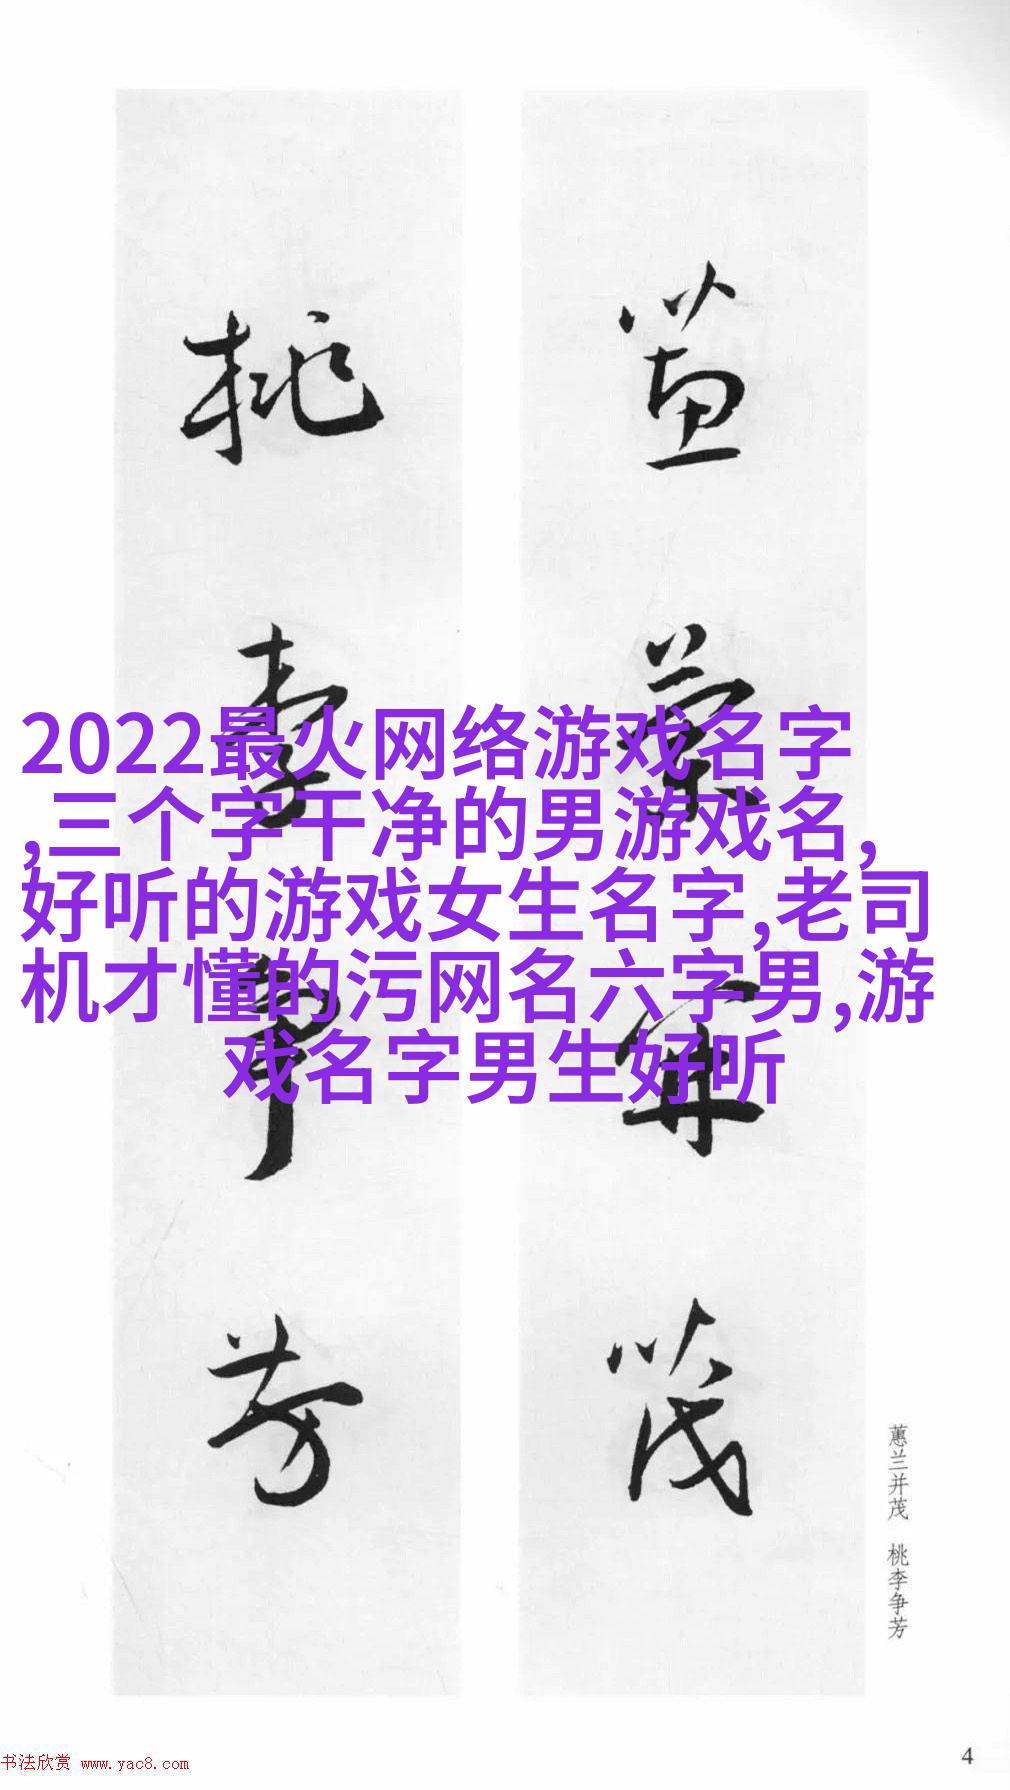 2022最火网络游戏名字
,三个字干净的男游戏名,
好听的游戏女生名字,老司
机才懂的污网名六字男,游
戏名字男生好听
蕙兰并茂
桃李争芳
蕙兰并茂 桃李争芳
书法欣赏 www.yac8.com
4